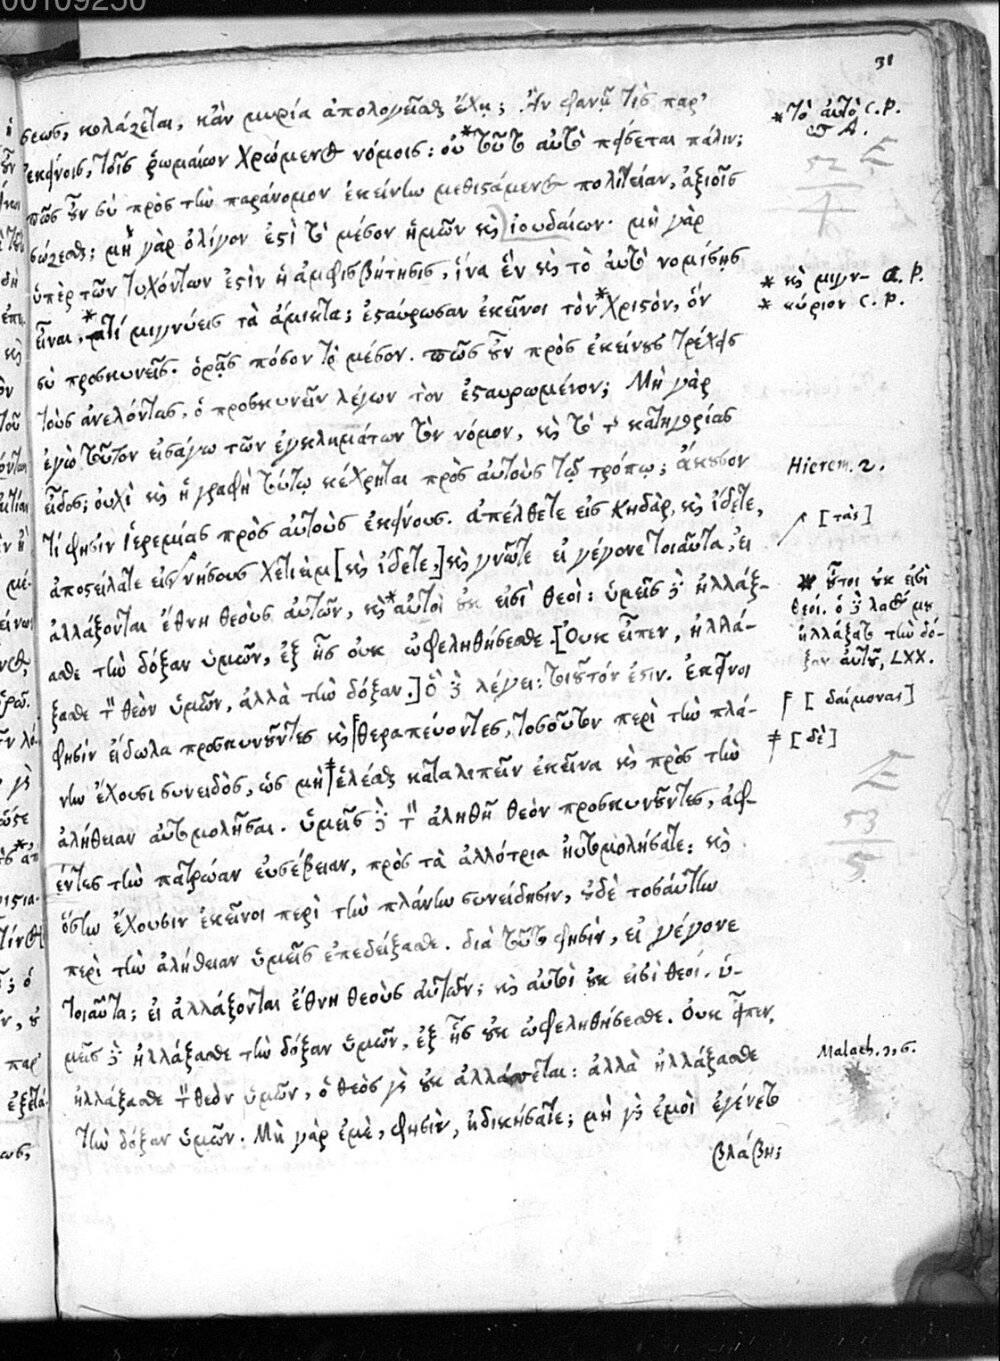 00109250
31
σεως, κολάζεται, κἂν μυρία ἀπολογεῖσθαι ἔχῃ; Ἂν φανῇ τὶς παρ'
ἐκείνοις, τοῖς ῥωμαίων χρώμενος νόμοις: οὐ * τοῦτο αὐτὸ πείσεται πάλιν;
πῶς οὖν σὺ πρὸς τὴν παράνομον ἐκείνην μεθιστάμενος πολιτείαν, ἀξιοῖς
σώζεσθαι; μὴ γὰρ ὀλίγον ἐστὶ τὸ μέσον ἡμῶν καὶ ἰουδαίων· μὴ γὰρ
ὑπὲρ τῶν τυχόντων ἐστὶν ἡ ἀμφισβήτησις, ἵνα ἓν καὶ τὸ αὐτὸ νομίσῃς
εἶναι, * τί μιγνύεις τὰ ἄμικτα; ἐσταύρωσαν ἐκεῖνοι τὸν * Χριστὸν, ὃν
σὺ προσκυνεῖς· ὁρᾷς πόσον τὸ μέσον. πῶς οὖν πρὸς ἐκείνους τρέχεις
τοὺς ἀνελόντας, ὁ προσκυνεῖν λέγων τὸν ἐσταυρωμένον; Μὴ γὰρ
ἐγὼ τοῦτον εἰσάγω τῶν ἐγκλημάτων τὸν νόμον, καὶ τὸ τῆς κατηγορίας
εἶδος; οὐχὶ καὶ ἡ γραφὴ τούτῳ κέχρηται πρὸς αὐτοὺς τῷ τρόπῳ; ἄκουσον
τί φησιν Ἱερεμίας πρὸς αὐτοὺς ἐκείνους. ἀπέλθετε εἰς Κηδὰρ, καὶ ἴδετε,
ἀποστείλατε εἰς νήσους Χετιὲμ [καὶ ἴδετε,] καὶ γνῶτε εἰ γέγονε τοιαῦτα, εἰ
ἀλλάξονται ἔθνη θεοὺς αὐτῶν, καὶ * αὐτοὶ οὐκ εἰσὶ θεοί: ὑμεῖς δὲ ἠλλάξ-
ασθε τὴν δόξαν ὑμῶν, ἐξ ἧς οὐκ ὠφεληθήσεσθε. [Οὐκ εἶπεν, ἠλλά-
ξασθε τὸν θεὸν ὑμῶν, ἀλλὰ τὴν δόξαν.] Ὃ δὲ λέγει: τοιοῦτόν ἐστιν. Ἐκεῖνοι
φησὶν εἴδωλα προσκυνοῦντες καὶ θεραπεύοντες, τοσοῦτον περὶ τὴν πλά-
νην ἔχουσι συνειδὸς, ὡς μὴ ἑλέσθαι καταλιπεῖν ἐκεῖνα καὶ πρὸς τὴν
ἀλήθειαν αὐτομολῆσαι. ὑμεῖς δὲ τὸν ἀληθῆ θεὸν προσκυνοῦντες, ἀφ-
έντες τὴν πατρῴαν εὐσέβειαν, πρὸς τὰ ἀλλότρια ηὐτομολήσατε: καὶ
ὅσην ἔχουσιν ἐκεῖνοι περὶ τὴν πλάνην συνείδησιν, οὐδὲ τοσαύτην
περὶ τὴν ἀλήθειαν ὑμεῖς ἐπεδείξασθε. διὰ τοῦτο φησὶν, εἰ γέγονε
τοιαῦτα; εἰ ἀλλάξονται ἔθνη θεοὺς αὐτῶν; καὶ αὐτοὶ οὐκ εἰσὶ θεοί. ὑ-
μεῖς δὲ ἠλλάξασθε τὴν δόξαν ὑμῶν, ἐξ ἧς οὐκ ὠφεληθήσεσθε. Οὐκ εἶπεν,
ἠλλάξασθε τὸν θεὸν ὑμῶν, ὁ θεὸς γὰρ οὐκ ἀλλάττεται: ἀλλὰ ἠλλάξασθε
τὴν δόξαν ὑμῶν. Μὴ γὰρ ἐμὲ, φησὶν, ἠδικήσατε; μὴ γὰρ ἐμοὶ ἐγένετο
βλάβη;
* τὸ αὐτὸ C. P.
A.
52
4
* καὶ μιγν- C. P.
* κύριον C. P.
Hierem. 2.
[τὰς]
* οὗτοι οὐκ εἰσὶ
θεοί. ὁ δὲ λαός μου
ἠλλάξατο τὴν δό-
ξαν αὐτοῦ, LXX.
[δαίμονας]
‡ [δὲ]
53
5
Malach. 3, 6.